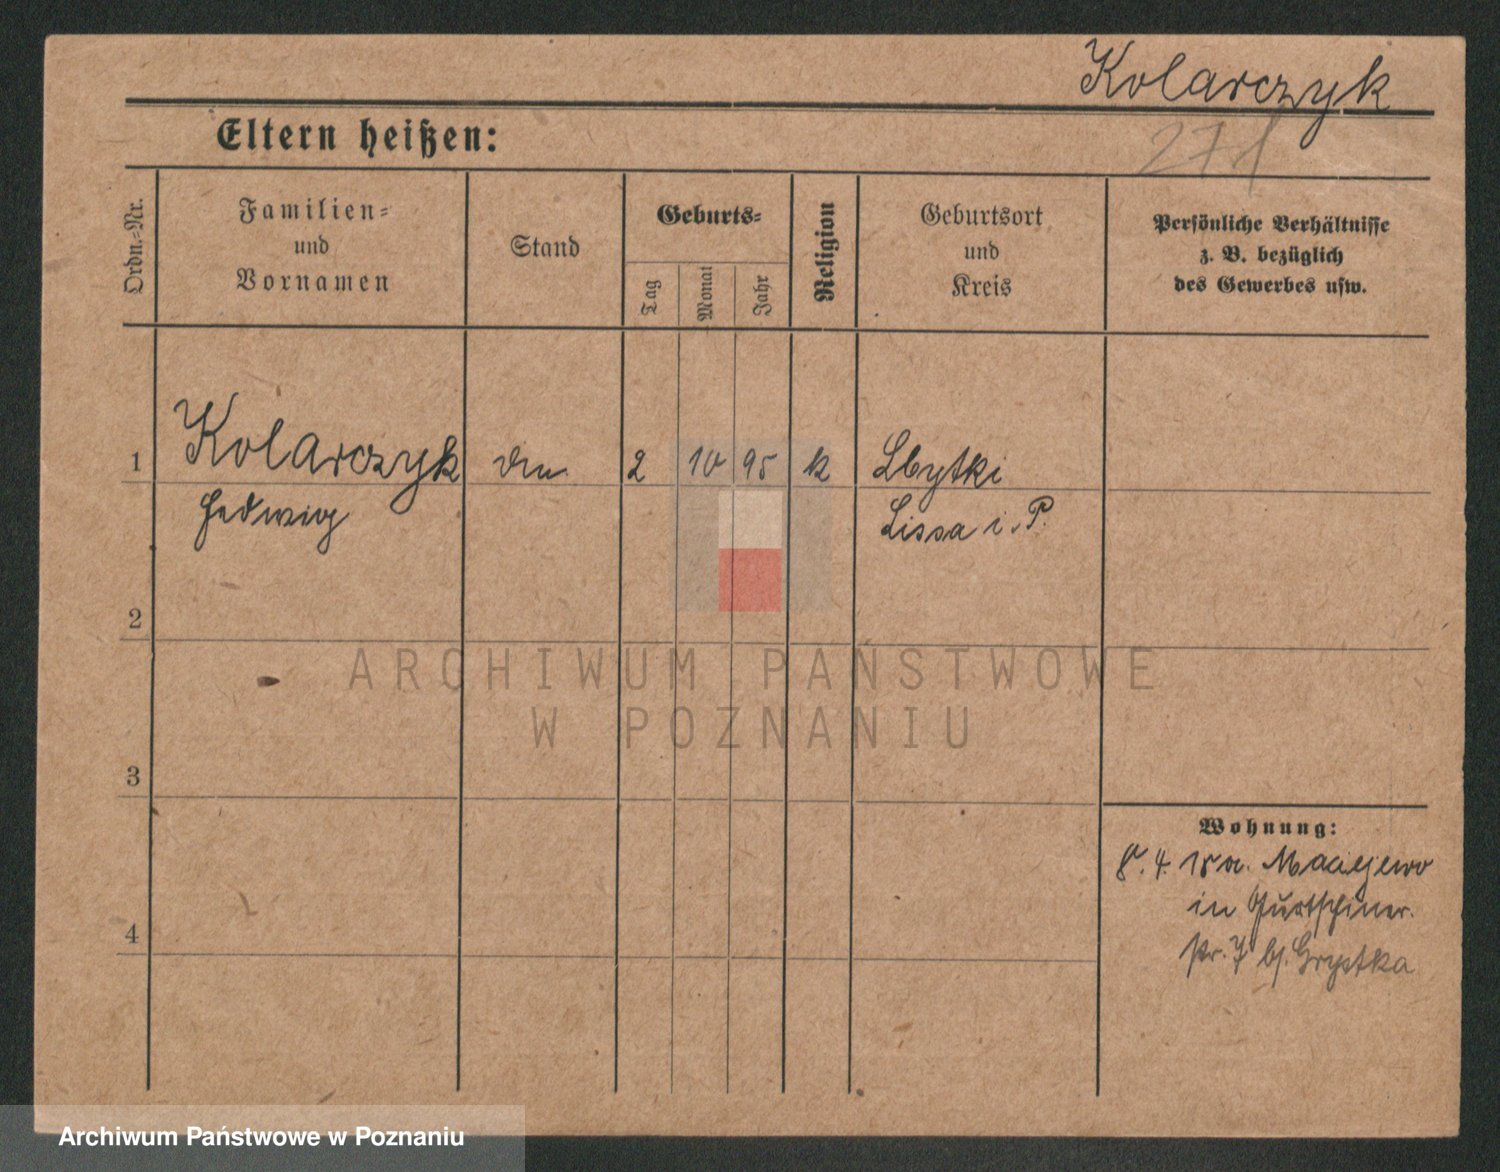 Kolarczyk
271
Eltern heißen:
Ordn.-Nr.
Familien-
und
Vornamen
Stand
Geburts-
Tag
Monat
Jahr
Religion
Geburtsort
und
Kreis
Persönliche Verhältnisse
z. B. bezüglich
des Gewerbes usw.
1 Kolarczyk 2 10 95 k Lbytki
Hedwig Lissa i. P.
2
3
4
Wohnung:
8. 4. 15 a. Maciejewo
in
str. 7 bj. Grystka
ARCHIWUM PAŃSTWOWE
W POZNANIU
Archiwum Państwowe w Poznaniu